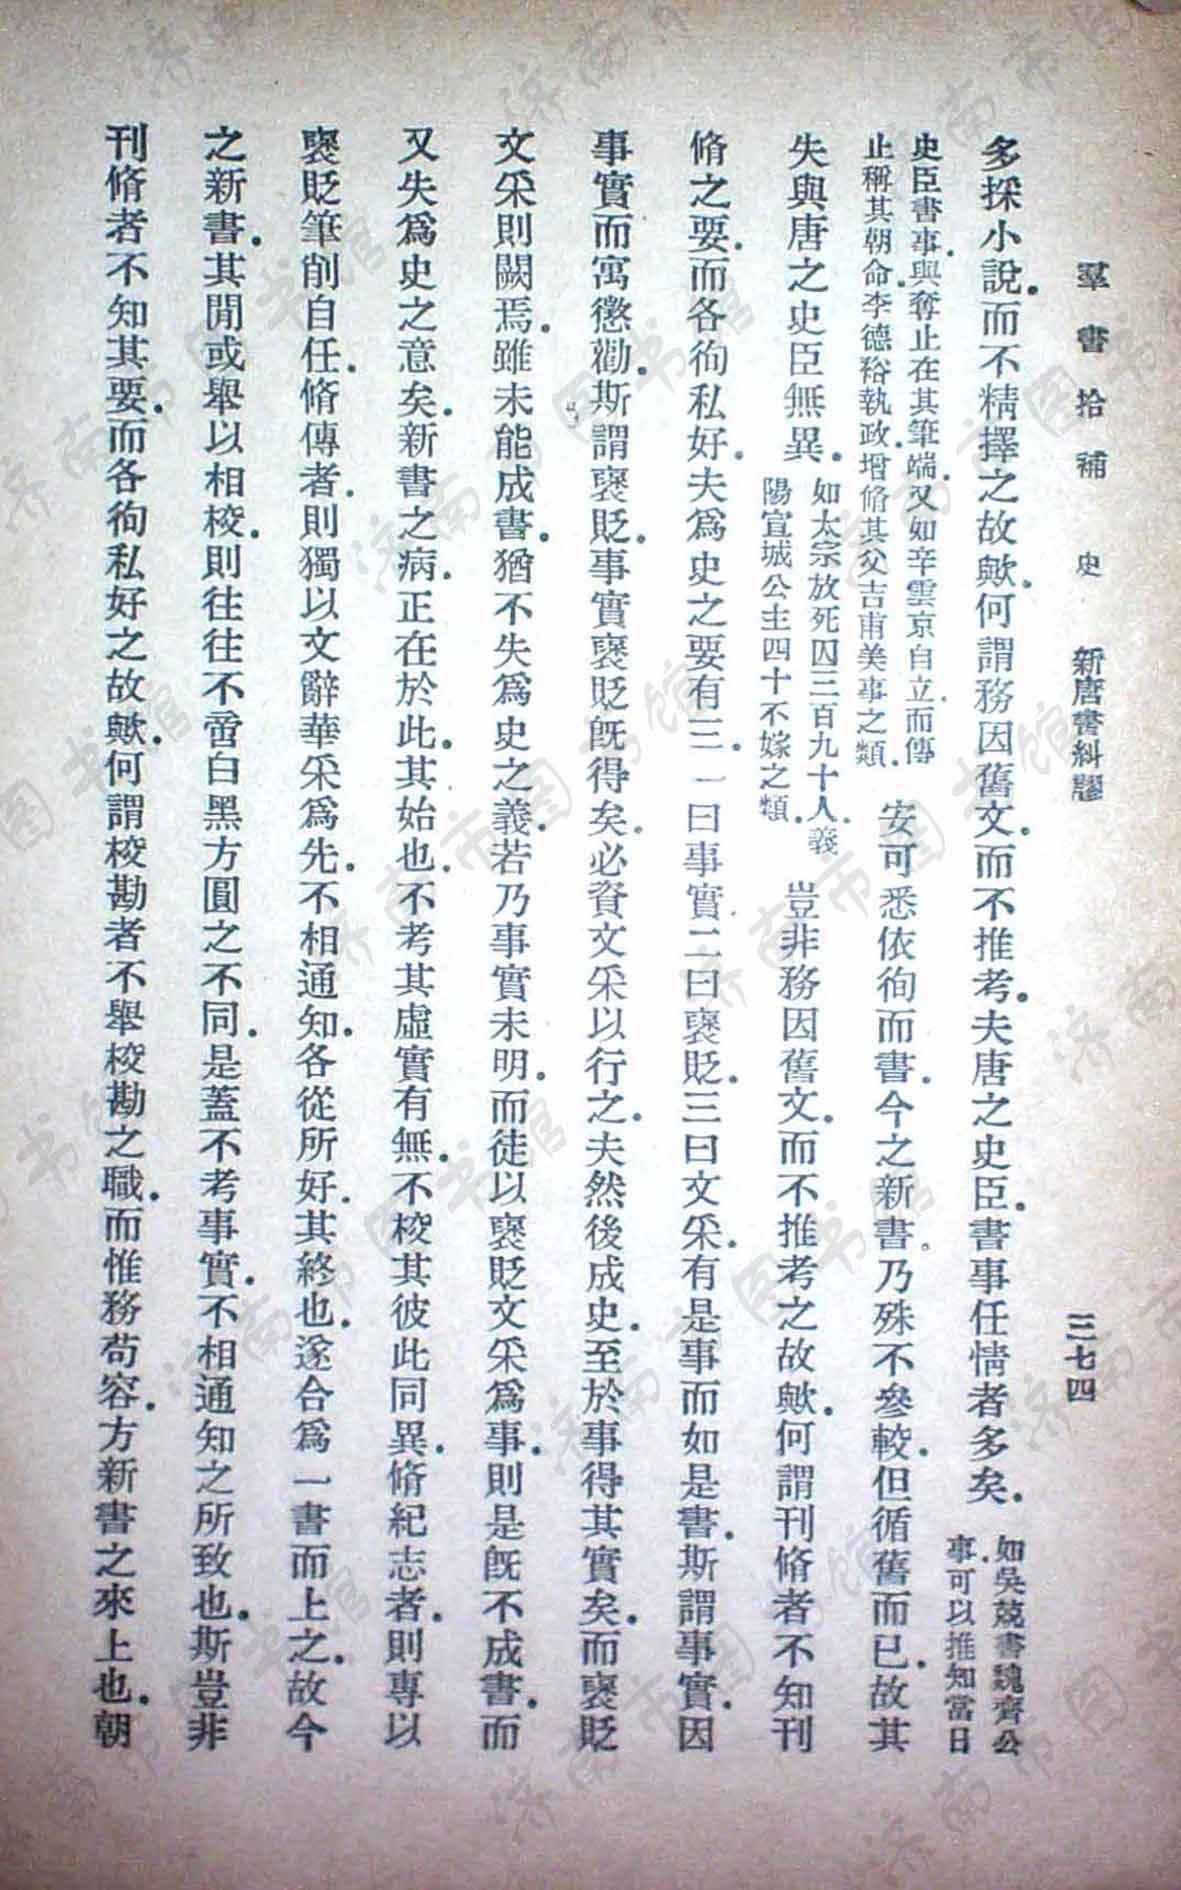 羣書拾補 史 新唐書糾謬 三七四
多採小說.而不精擇之故歟.何謂務因舊文.而不推考.夫唐之史臣.書事任情者多矣.
如吳兢書魏齊公
事.可以推知當日
史臣書事.與奪止在其筆端.又如辛雲京自立.而傳
止稱其朝命.李德裕執政.增脩其父吉甫美事之類.
安可悉依徇而書.今之新書.乃殊不參較.但循舊而已.故其
失與唐之史臣無異.
如太宗放死囚三百九十人.義
陽宣城公主四十不嫁之類.
豈非務因舊文.而不推考之故歟.何謂刊脩者不知刊
脩之要.而各徇私好.夫爲史之要有三.一曰事實.二曰襃貶.三曰文采.有是事而如是書.斯謂事實.因
事實而寓懲勸.斯謂襃貶.事實襃貶旣得矣.必資文采以行之.夫然後成史.至於事得其實矣.而襃貶
文采則闕焉.雖未能成書.猶不失爲史之義.若乃事實未明.而徒以襃貶文采爲事.則是旣不成書.而
又失爲史之意矣.新書之病.正在於此.其始也.不考其虛實有無.不校其彼此同異.脩紀志者.則專以
襃貶筆削自任.脩傳者.則獨以文辭華采爲先.不相通知.各從所好.其終也.遂合爲一書而上之.故今
之新書.其閒或舉以相校.則往往不啻白黑方圓之不同.是蓋不考事實.不相通知之所致也.斯豈非
刊脩者不知其要.而各徇私好之故歟.何謂校勘者不舉校勘之職.而惟務苟容.方新書之來上也.朝
济南市图书馆